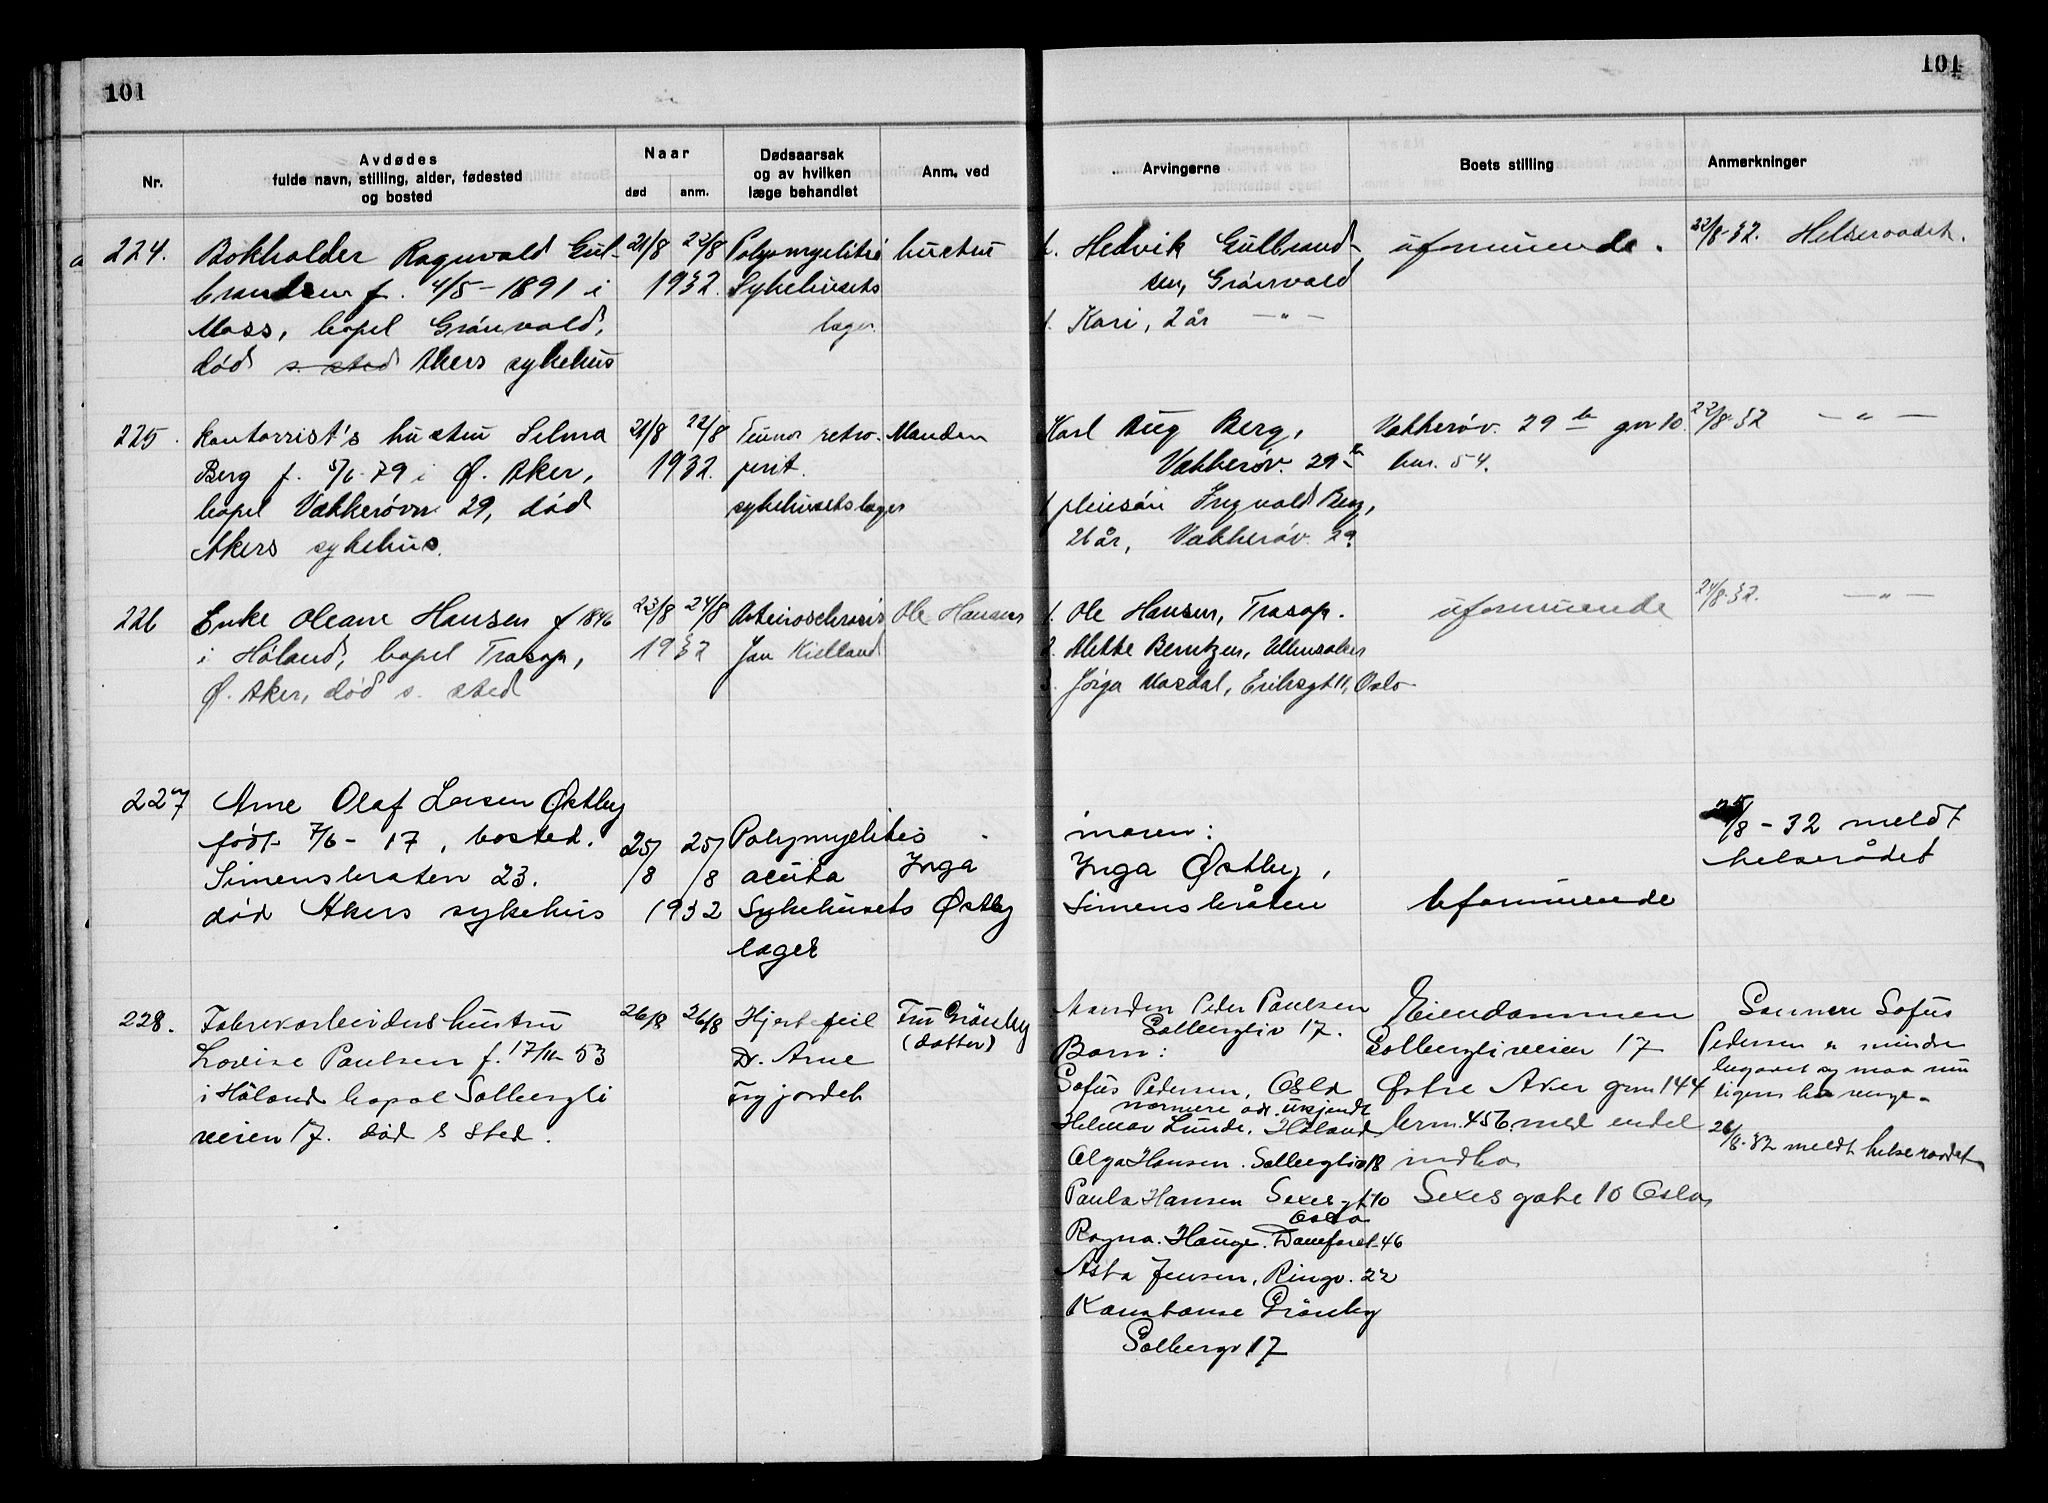 101
101
Nr.
Avdødes
fulde navn, stilling, alder, fødested
og bosted
Naar
død
anm.
Dødsaarsak
og av hvilken
læge behandlet
Anm. ved
Arvingerne
Boets stilling
Anmerkninger
224.
Bokholder Ragnvald Gul-
brandsen f. 4/5-1891 i
Moss, bopel Grönvold,
död s. sted Akers sykehus
21/8 22/8
1932.
Polyomyelitis
Sykehusets
læger.
hustru
1. Hedvik Gulbrand-
sen, Grönvold
1. Kari, 2 år — " —
uformuende.
22/8-32. Helseraadet.
225.
Kontorist's hustru Selma
Berg f. 5/6-79 i Ø. Aker,
bopel Vækkerövn 29, död
Akers sykehus.
21/8 22/8
1932.
Tumor retro-
perit.
sykehusets læger
Manden
Karl Aug Berg,
Vækkeröv. 29 b
1 pleiesön Ingvald Berg,
26 år, Vækkeröv. 29
Vækkeröv. 29 b gnr 10.
bnr. 54.
22/8-32 — " —
226
Enke Oleane Hansen f 1846
i Höland, bopel Trasop,
Ø. Aker, död s. sted
23/8 24/8
1932
Arteriosclerosis
Jan Kielland
Ole Hansen
1. Ole Hansen, Trasop.
2. Mette Berntzen, Ullensaker
3. Jörga Mosdal, Eriksgt 11, Oslo
uformuende
24/8-32. — " —
227
Arne Olaf Larsen Østby
født 7/6-17, bosted.
Simensbraten 23.
død Akers sykehus
25/8 25/8
1932
Polymyelitis
acuta
Sykehusets
læger
Inga
Østby
moren:
Inga Østby,
Simensbråten
Uformuende
25/8-32 meldt
helserådet
228.
Fabrikarbeiders hustru
Lovise Paulsen f. 17/11-53
i Höland bopæl Solbergli
veien 17. död s sted.
26/8 26/8
Hjertefeil
Dr. Arne
Fru Grönby
(datter)
Manden Peder Paulsen
Solbergliv 17.
Barn:
Sofus Pedersen, Oslo
nærmere adr. ukjendt
Helmar Lunde, Höland
Olga Hansen. Solbergliv 18
Paula Hansen Sexesgt 10
Oslo
Ragna. Hauge. Danefaret 46
Asta Jensen, Ringv. 22
Konstanse Grönby
Solbergv 17
Eiendommen
Solbergliveien 17
Østre Aker grn 144
brn. 456. med endel
indbo
Sexes gate 10 Oslo
Sønnen Sofus
Pedersen er mindre
begavet og maa
26/8-32 meldt helseraadet